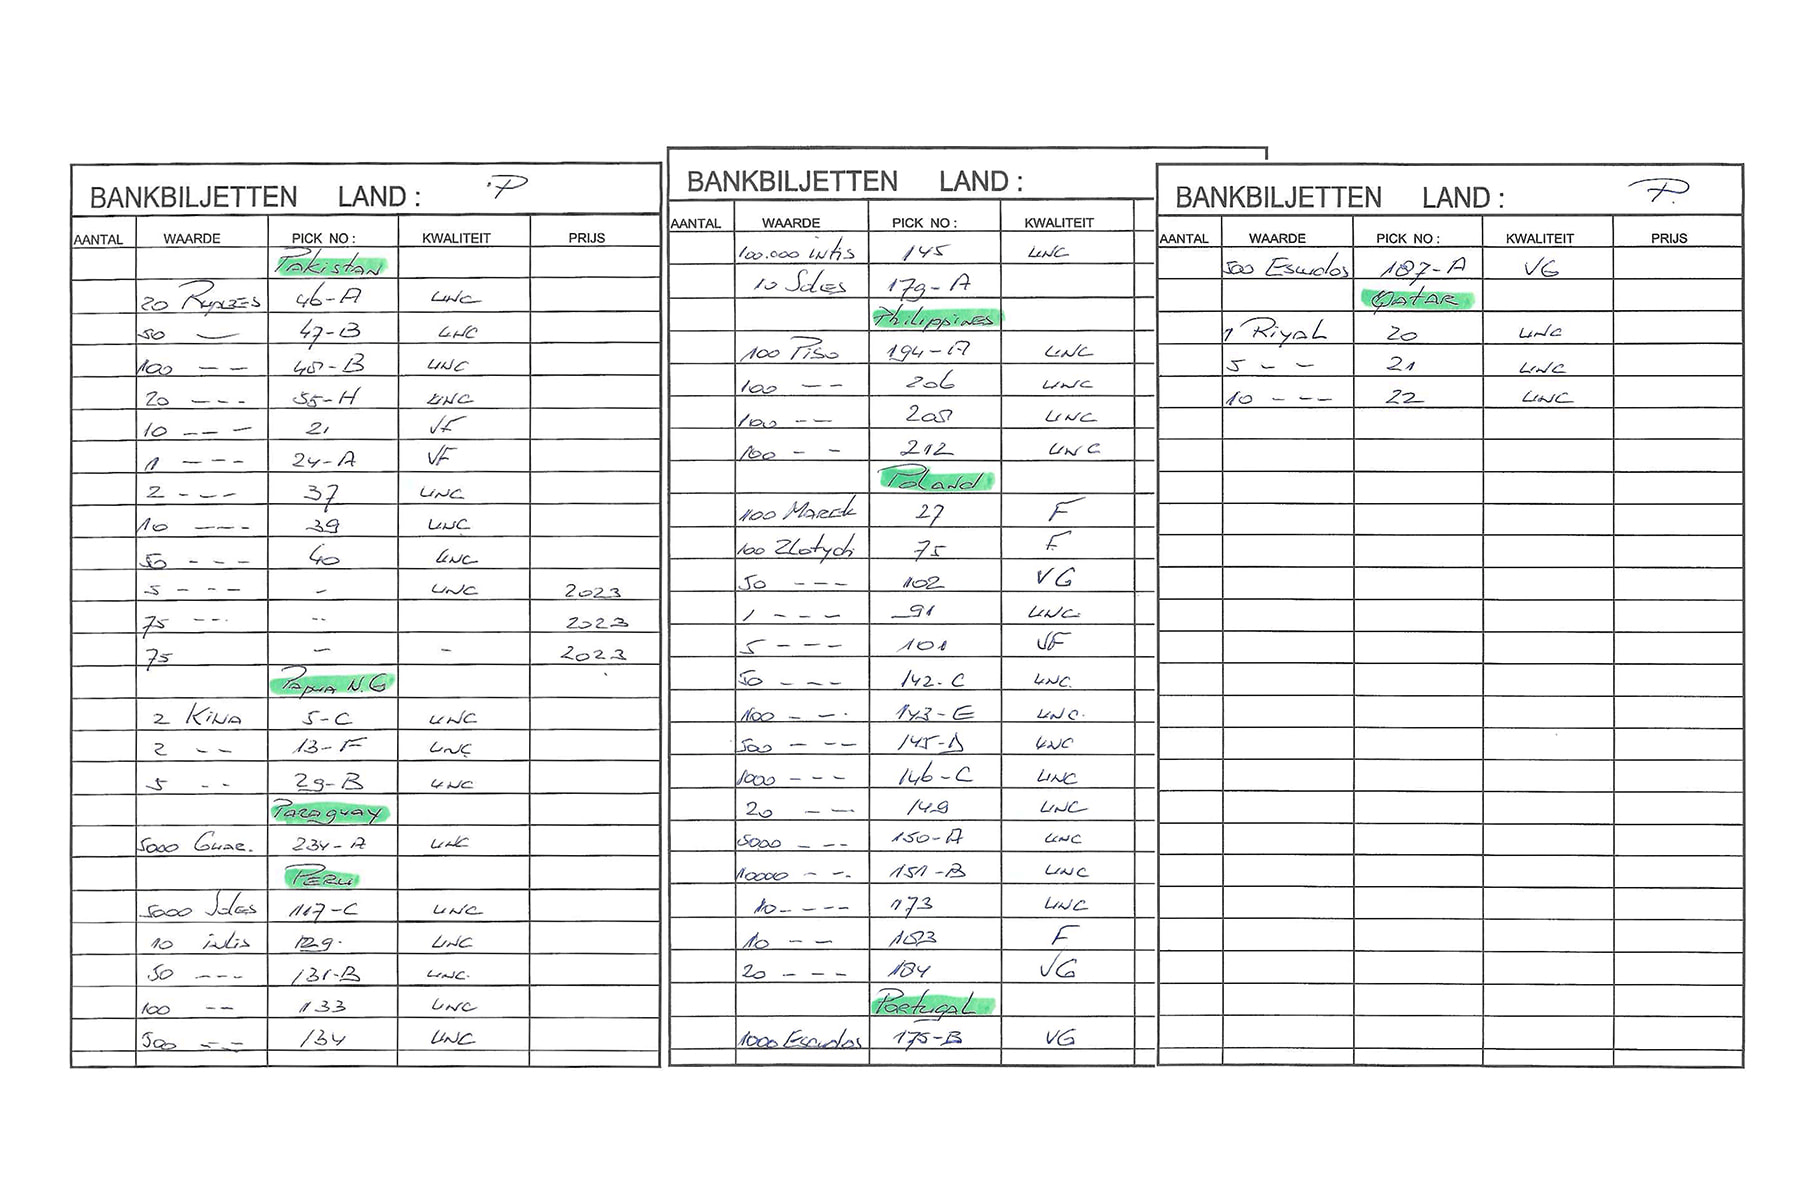 BANKBILJETTEN LAND : P
AANTAL WAARDE PICK NO : KWALITEIT PRIJS
Pakistan
20 Rupees 46-A UNC
50 — 47-B UNC
100 — — 48-B UNC
20 - - - 55-H UNC
10 - - - 21 VF
1 - - - 24-A VF
2 - - - 37 UNC
10 - - - 39 UNC
50 - - - 40 UNC
5 - - - - UNC 2023
75 - - - - - 2023
75 - - 2023
Papua N.G
2 Kina 5-C UNC
2 - - 13-F UNC
5 - - 29-B UNC
Paraguay
5000 Guar. 234-A UNC
Peru
5000 Soles 117-C UNC
10 intis 129. UNC
50 - - - 131-B UNC.
100 - - 133 UNC
500 - - - 134 UNC
BANKBILJETTEN LAND :
AANTAL WAARDE PICK NO : KWALITEIT
100.000 intis 145 UNC
10 Soles 179-A
Philippines
100 Piso 194-A UNC
100 - - 206 UNC
100 - - 208 UNC
100 - - 212 UNC
Poland
100 Marek 27 F
100 Zlotych 75 F
50 - - - 102 VG
1 - - - 91 UNC.
5 - - - 101 VF
50 - - - 142-C UNC.
100 - - - 143-E UNC.
500 - - - 145-D UNC
1000 - - - 146-C UNC
20 - - - 149 UNC
5000 - - - 150-A UNC
10000 - - . 151-B UNC
10 - - - - 173 UNC
10 - - 183 F
20 - - - 184 VG
Portugal
1000 Escudos 175-B VG
BANKBILJETTEN LAND : P.
AANTAL WAARDE PICK NO : KWALITEIT PRIJS
500 Escudos 187-A VG
Qatar
1 Riyal 20 UNC
5 - - 21 UNC
10 - - - 22 UNC